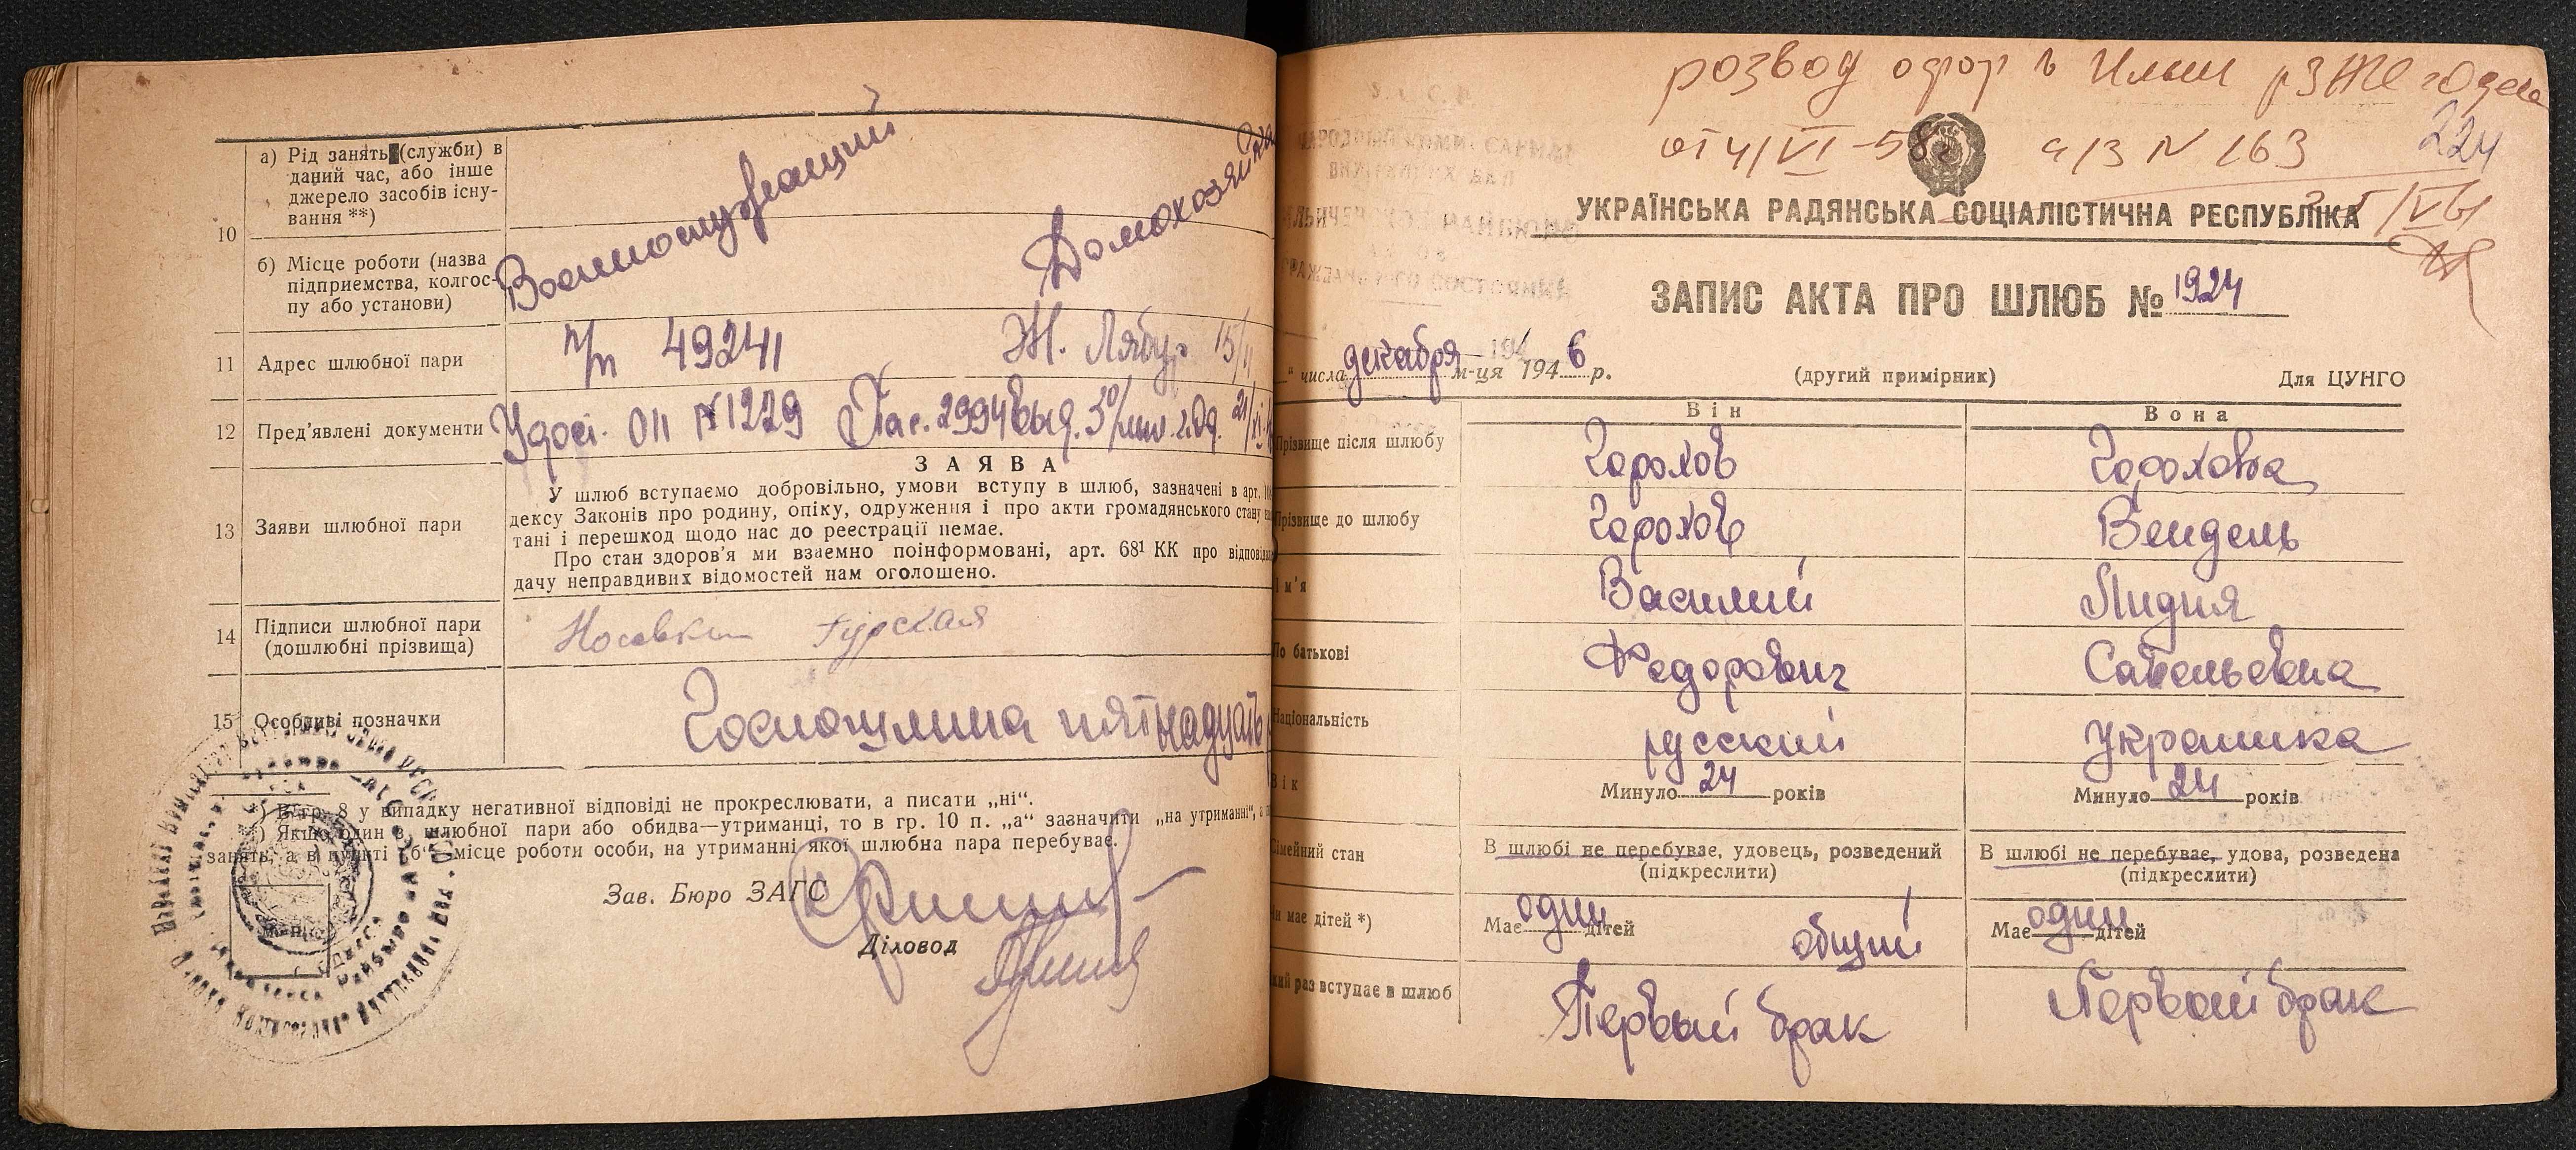 10
а) Рід занять (служби) в
даний час, або інше
джерело засобів існу-
вання **)
б) Місце роботи (назва
підприємства, колгос-
пу або установи)
Военнослужащий
Домохозяйка
11 Адрес шлюбної пари
п/п 49241
Ж. Лябур 15/
12 Пред'явлені документи
Удост. ОП №1229
Пас. 2994 выд. 3 о/мил. г. Од. 21/XI
З А Я В А
13 Заяви шлюбної пари
У шлюб вступаємо добровільно, умови вступу в шлюб, зазначені в арт.
дексу Законів про родину, опіку, одруження і про акти громадянського стану
тані і перешкод щодо нас до реєстрації немає.
Про стан здоров'я ми взаємно поінформовані, арт. 68¹ КК про
дачу неправдивих відомостей нам оголошено.
14 Підписи шлюбної пари
(дошлюбні прізвища)
Гурская
15 Особливі позначки
Госпошлина пятнадцать
*) В гр. 8 у випадку негативної відповіді не прокреслювати, а писати „ні“.
**) Якщо один з шлюбної пари або обидва—утриманці, то в гр. 10 п. „а“ зазначити „на утриманні“,
занять, а в пункті „б“ місце роботи особи, на утриманні якої шлюбна пара перебуває.
Зав. Бюро ЗАГС
Діловод
розвод офор в
от 4/VI-58г а/з N 163
224
УКРАЇНСЬКА РАДЯНСЬКА СОЦІАЛІСТИЧНА РЕСПУБЛІКА
ЗАПИС АКТА ПРО ШЛЮБ № 1924
“ числа декабря м-ця 1946 р.
(другий примірник)
Для ЦУНГО
Він
Вона
Прізвище після шлюбу
Горохов
Горохова
Прізвище до шлюбу
Горохов
Вендель
Ім'я
Василий
Лидия
По батькові
Федорович
Савельевна
Національність
русский
Украинка
Вік
Минуло 24 років
Минуло 24 років
Сімейний стан
В шлюбі не перебуває, удовець, розведений
(підкреслити)
В шлюбі не перебуває, удова, розведена
(підкреслити)
Чи має дітей *)
Має один дітей
общий
Має один дітей
раз вступає в шлюб
Первый брак
Первый брак